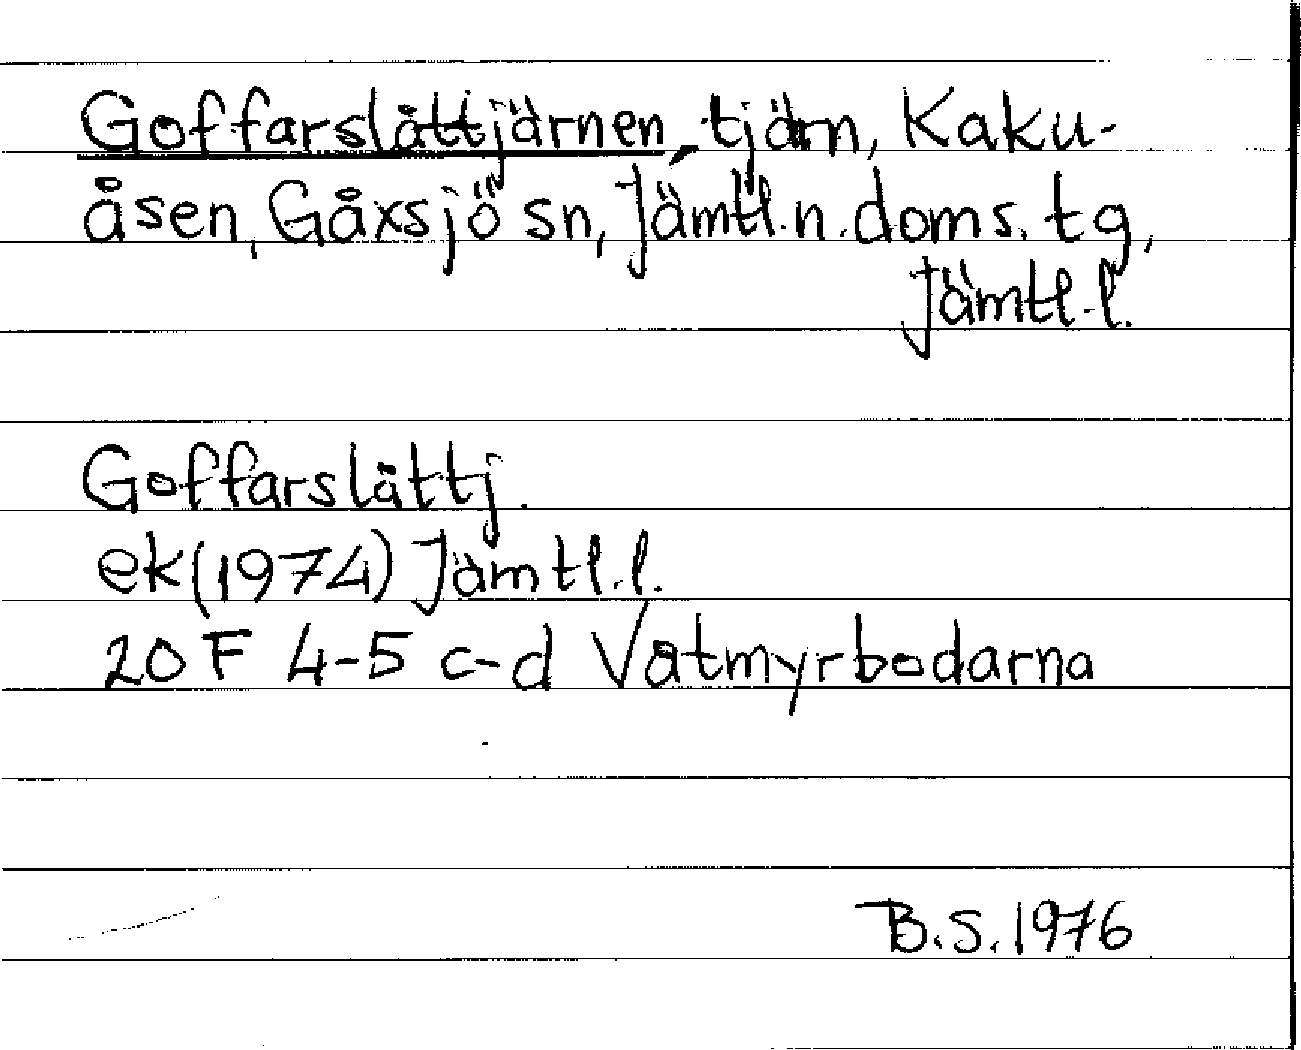 Goffarslåttjärnen, tjärn, Kaku-
åsen, Gåxsjö sn, Jämtl. n. doms. tg,
Jämtl. l.
Goffarslåttj.
ek (1974) Jämtl. l.
20 F 4-5 c-d Våtmyrbodarna
B.S. 1976